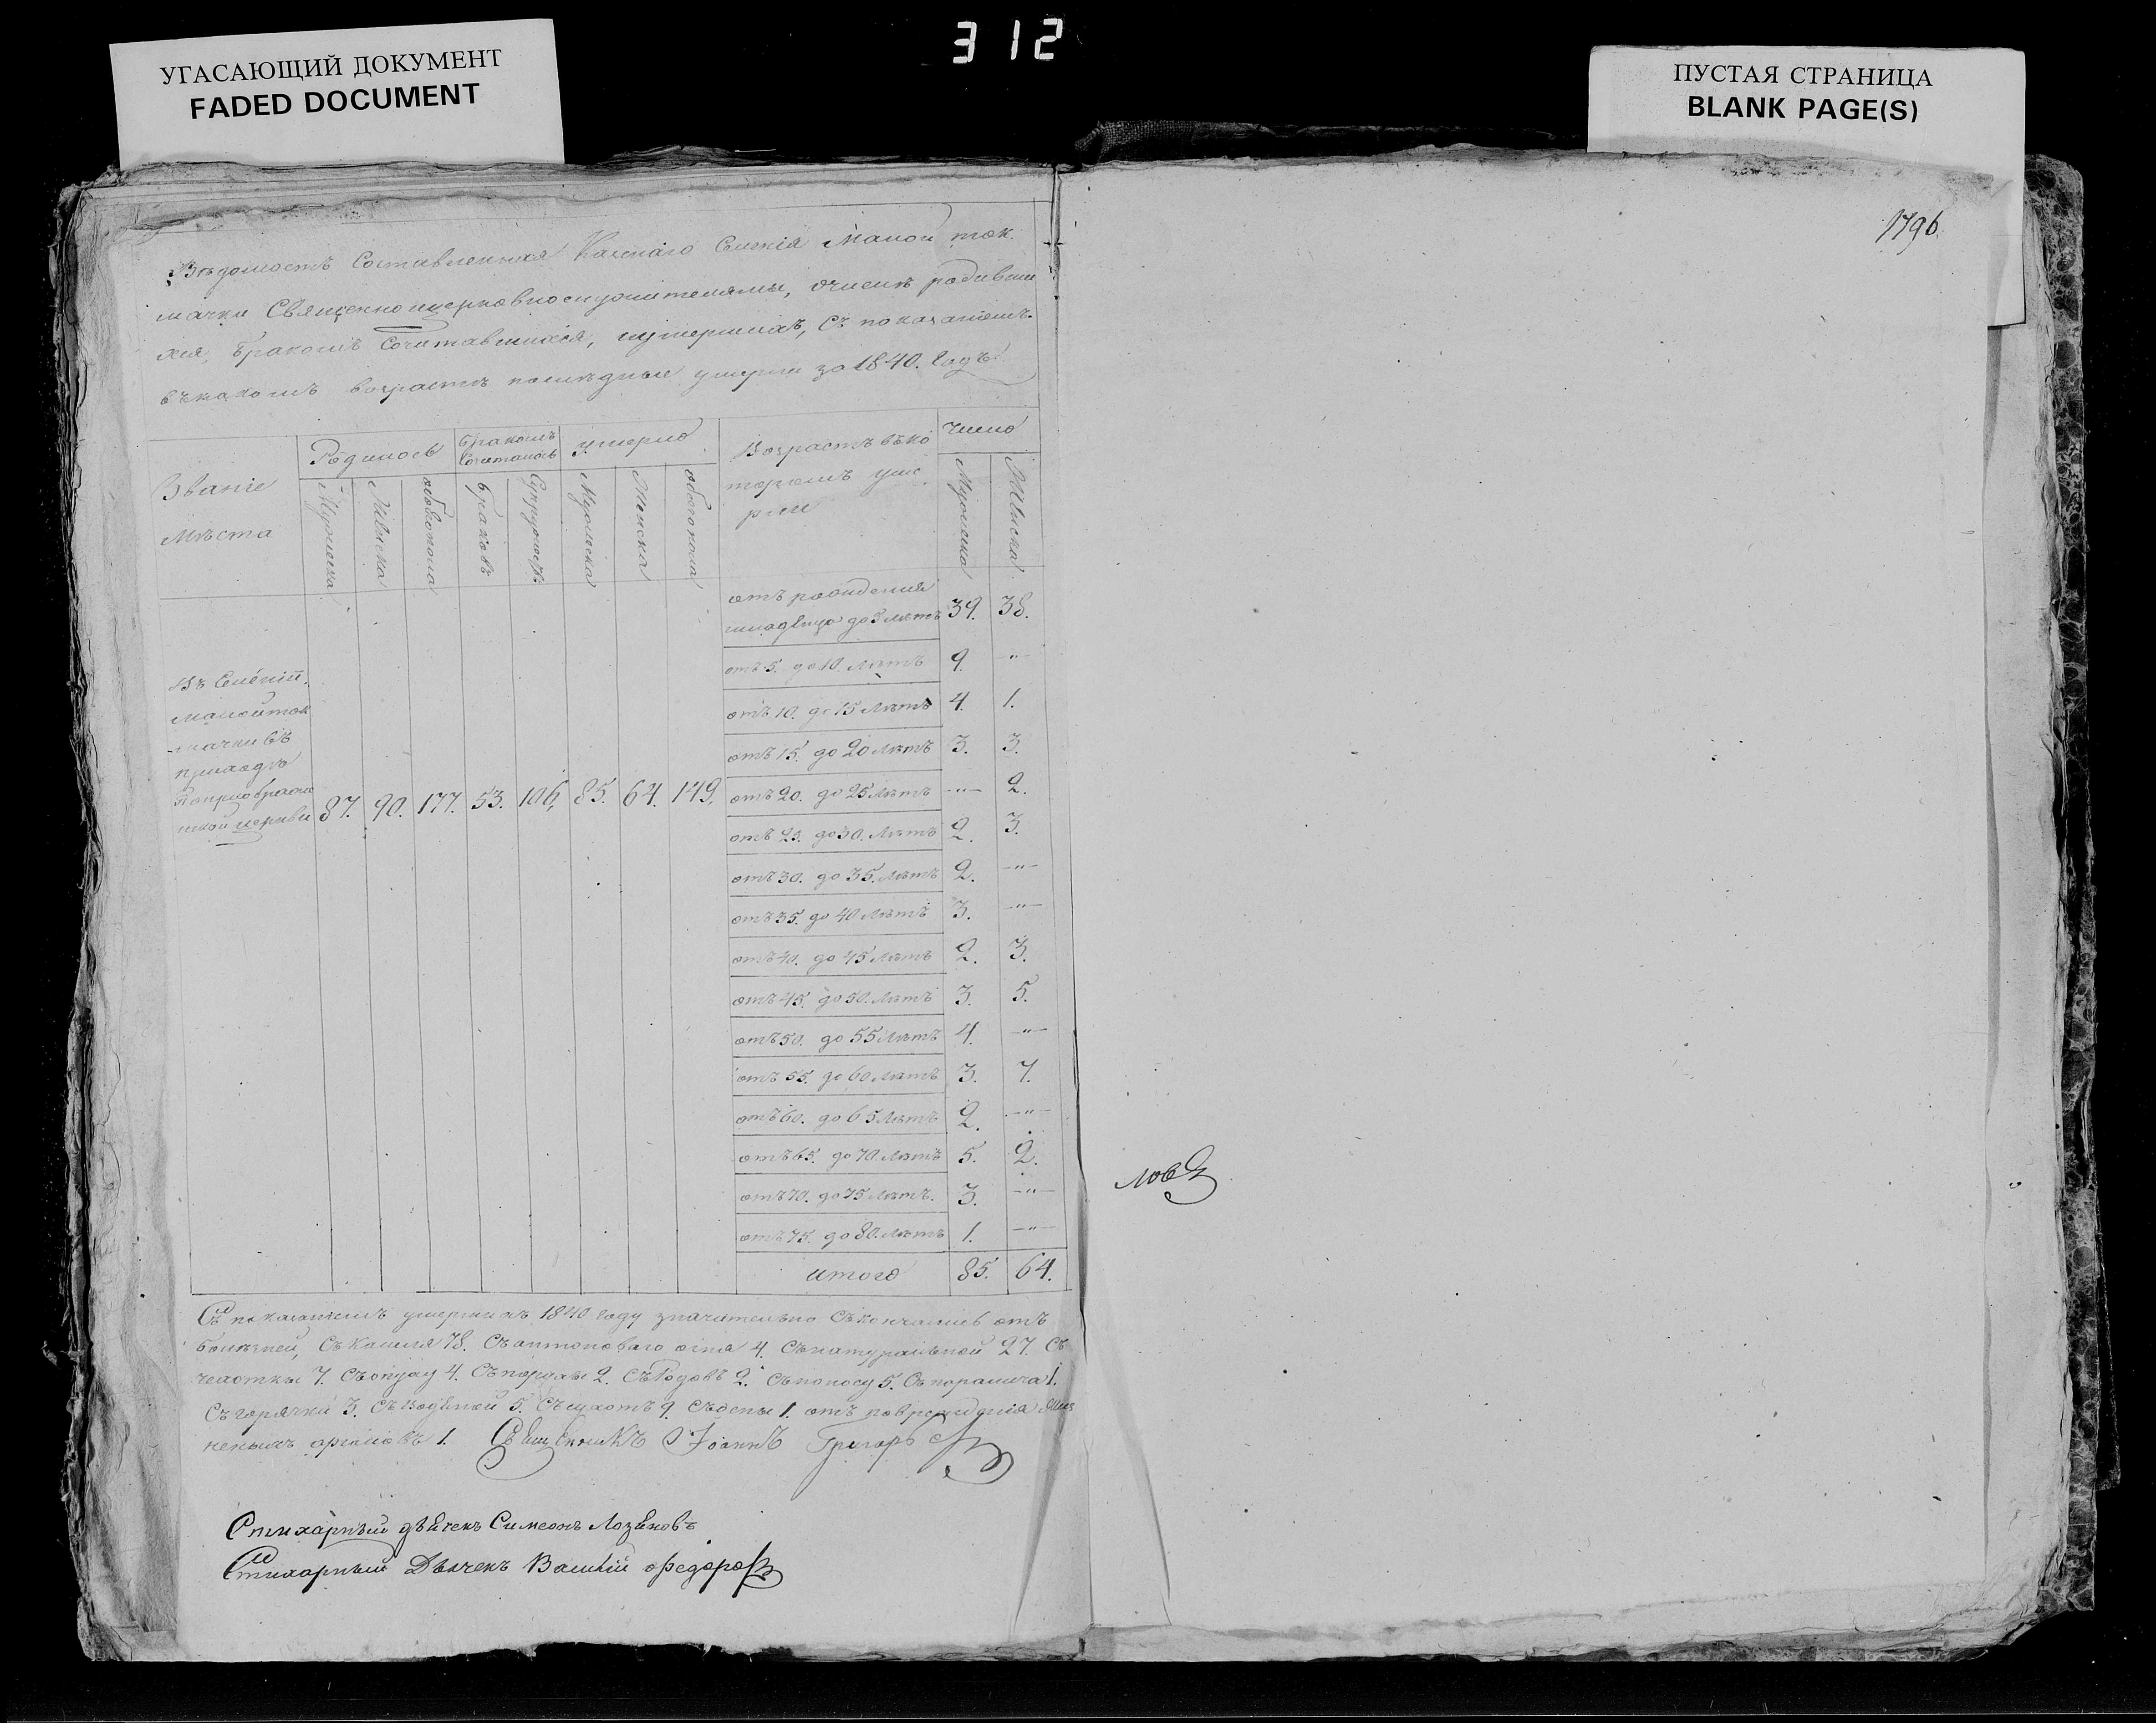 312
УГАСАЮЩИЙ ДОКУМЕНТ
FADED DOCUMENT
ПУСТАЯ СТРАНИЦА
BLANK PAGE(S)
1796.
Вѣдомость Составленная Селенія Малой ток
мачки Священноцерковнослужителямы, очислѣ родивши
хся, Бракомъ Сочитавшихся, иумершихъ, съ показаніемъ
въкакомъ возрастѣ послѣдные умерли за 1840. Годъ
Званіе мѣста
Родилось
Бракомъ Сочиталось
умерло
Возрастъ въко
торомъ уме
рли
Число
Мужеска
Женска
обоегопола
браковъ
Мужеска
Женска
обоегопола
Мужеска
Женска
Въ Селеніи
малой ток
мачки въ
приходѣ
церкви
87. 90. 177. 53. 106, 85. 64. 149.
отъ рожденія
младенца до 5 лѣтъ 39. 38.
отъ 5. до 10. лѣтъ 9. -"-
отъ 10. до 15 лѣтъ 4. 1.
отъ 15. до 20 лѣтъ 3. 3.
отъ 20. до 25 лѣтъ -"- 2.
отъ 25. до 30. лѣтъ 2. 3.
отъ 30. до 35. лѣтъ 2. -"-
отъ 35. до 40 лѣтъ 3. -"-
отъ 40. до 45 лѣтъ 2. 3.
отъ 45. до 50. лѣтъ 3. 5.
отъ 50. до 55 лѣтъ 4. -"-
отъ 55. до 60 лѣтъ 3. 7.
отъ 60. до 65 лѣтъ 2. -"-
отъ 65. до 70. лѣтъ 5. 2.
отъ 70. до 75 лѣтъ. 3. -"-
отъ 75. до 80. лѣтъ 1. -"-
итого 85. 64.
Съ показаніемъ умершихъ 1840 году значительно скончались отъ
болѣзней, Съ кашля 78. Съ антоноваго огня 4. Съ натуральной 27. Съ
чахотки 7. Съ опуху 4. Съ 2. Съ Родовъ 2. Съ поносу 5. Съ 1.
Съ горячки 3. Съ водяной 5. Съ сухотъ 9. Съ оспы 1. отъ повреждения жиз
неныхъ 1. Священникъ Іоаннъ Григоро
ловъ
Стихарный дьячекъ Симеонъ Лозановъ
Стихарный Дьячекъ Василій Федоровъ